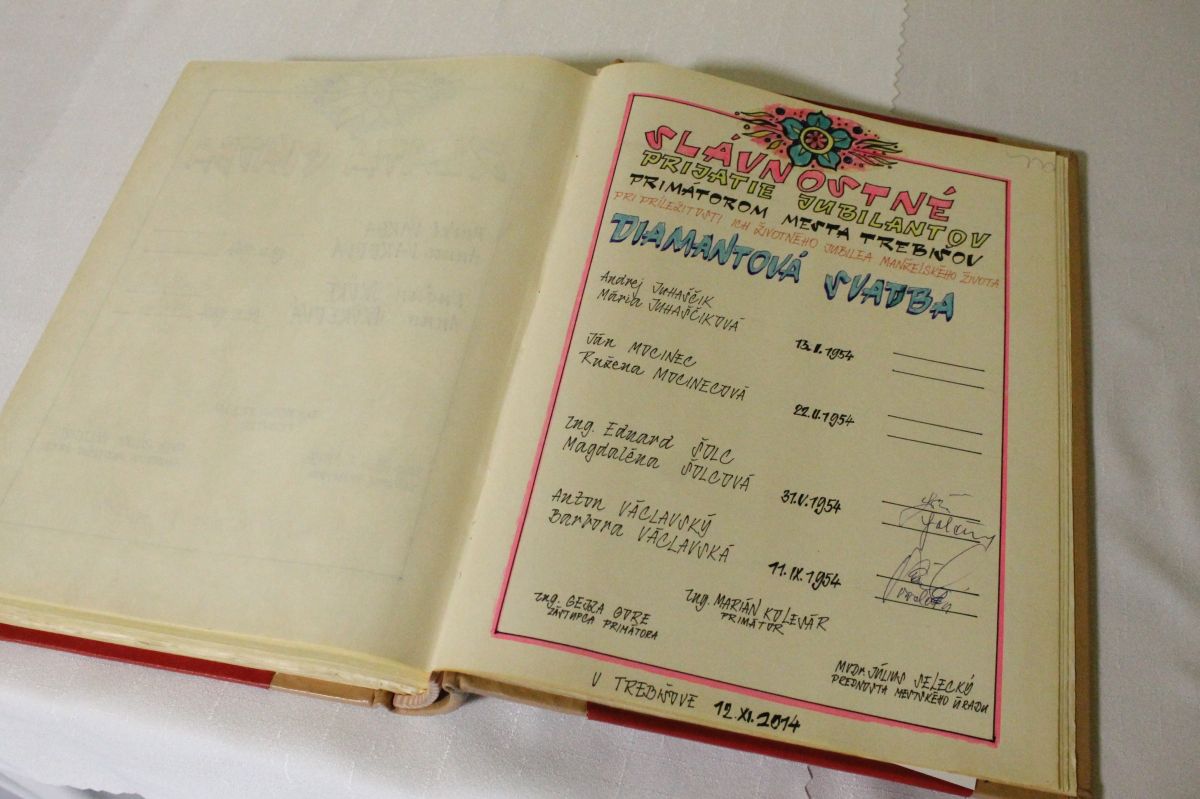 SLÁVNOSTNÉ
PRIJATIE JUBILANTOV
PRIMÁTOROM MESTA TREBIŠOV
PRI PRÍLEŽITOSTI ICH ŽIVOTNÉHO JUBILEA MANŽELSKÉHO ŽIVOTA
DIAMANTOVÁ SVADBA
Andrej JUHAŠČIK
Mária JUHAŠČIKOVÁ
13.II.1954
Ján MOCINEC
Ružena MOCINECOVÁ
22.II.1954
Ing. Eduard ŠOLC
Magdaléna ŠOLCOVÁ
31.V.1954
Anton VÁCLAVSKÝ
Barbora VÁCLAVSKÁ
11.IX.1954
Ing. GEJZA GORE
ZÁSTUPCA PRIMÁTORA
Ing. MARIÁN KOLESÁR
PRIMÁTOR
MUDr. JÚLIUS SELECKÝ
PREDNOSTA MESTSKÉHO ÚRADU
V TREBIŠOVE 12.XI.2014